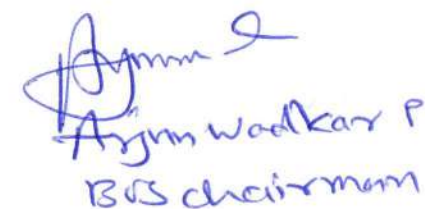 Arjun Wadkar P
BOS chairman